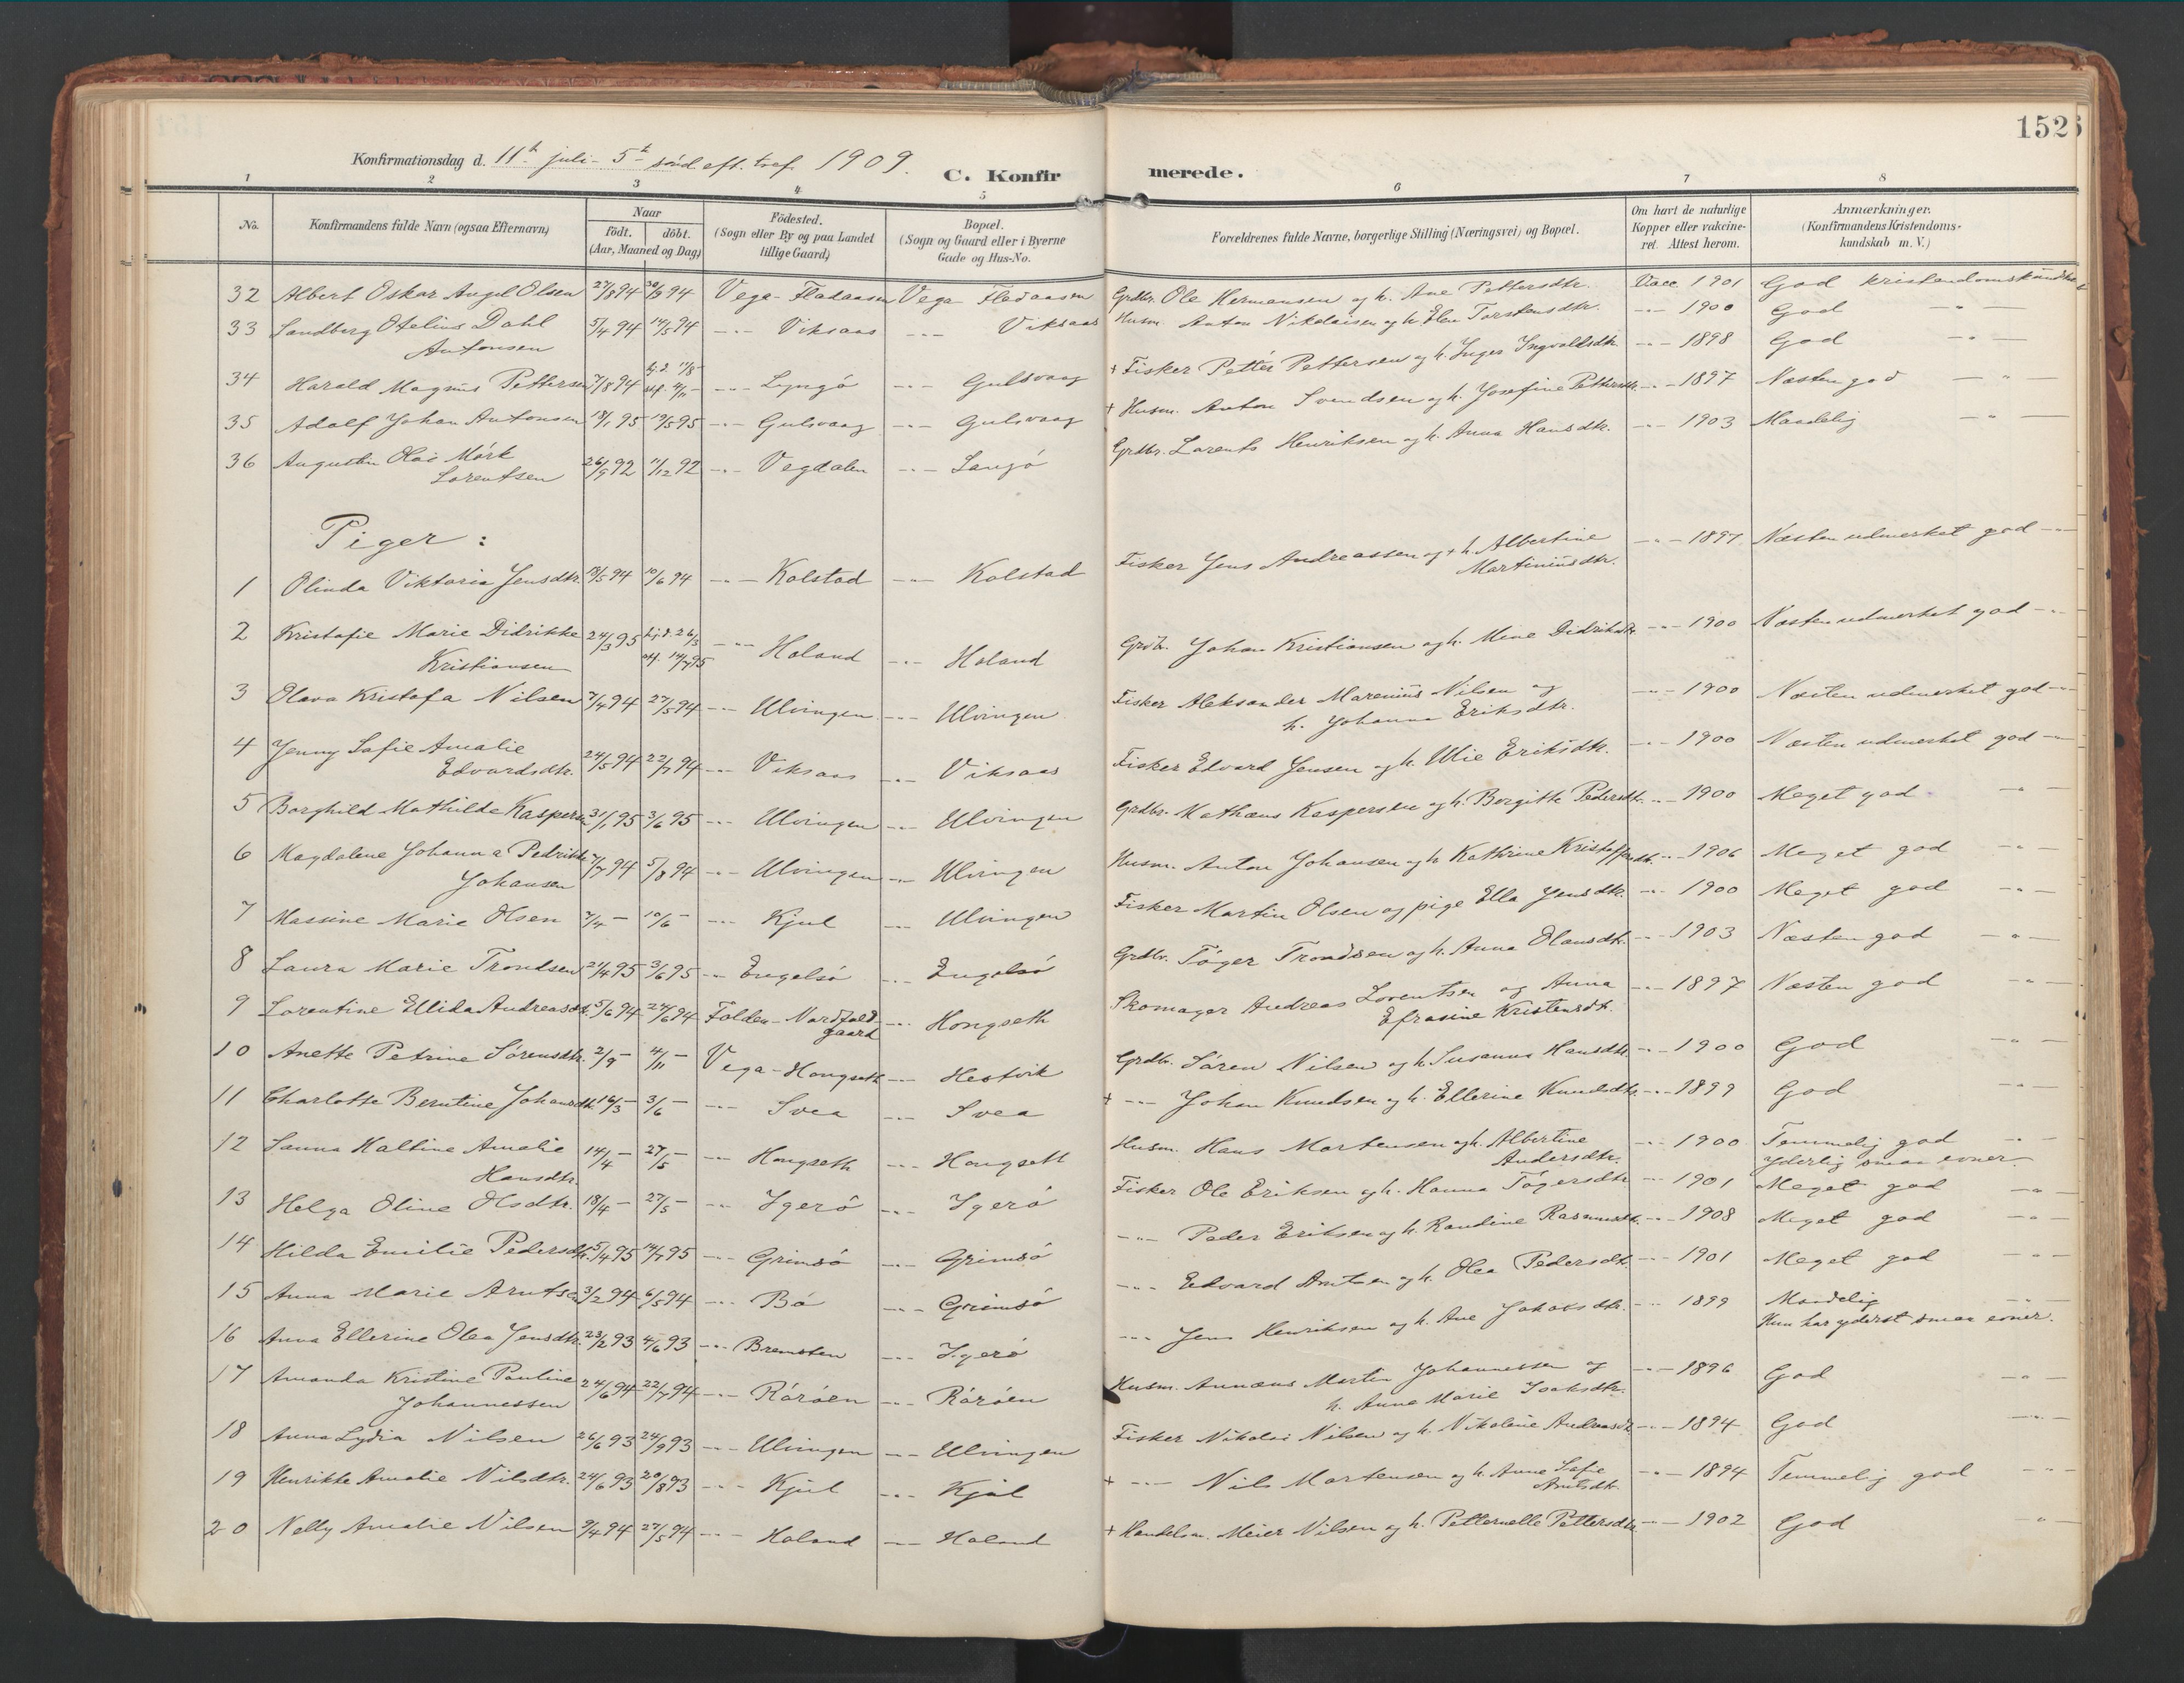 152
Konfirmationsdag d. 11th juli - 5te sönd. eft. tref. 1909.
C. Konfirmerede.
1 2 3 4 5 6 7 8
No. Konfirmandens fulde Navn (ogsaa Efternavn) Naar födt. döbt. (Aar, Maaned og Dag) Födested. (Sogn eller By og paa Landet tillige Gaard) Bopæl. (Sogn og Gaard eller i Byerne Gade og Hus-No. Forældrenes fulde Navne, borgerlige Stilling (Næringsvei) og Bopæl. Om havt de naturlige Kopper eller vakcineret. Attest herom. Anmærkninger. (Konfirmandens Kristendomskundskab m. V.)
32 Albert Oskar Angel Olsen 27/8 94 30/9 94 Vega - Fladaasen Vega Fladaasen Grdbr. Ole Hermansen og h. Ane Pettersdtr. Vacc. 1901 God kristendomskundskab
33 Sandberg Otelius Dahl Antonsen 5/4 94 14/5 94 -"- Viksaas -"- Viksaas Husm. Anton Nikolaisen og h. Elen Torstensdtr. -"- 1900 God -"-
34 Harald Magnus Pettersen 7/8 94 hj.d. 11/8 stf. 4/11 -"- Lyngö -"- Gulsvaag + Fisker Petter Pettersen og h. Inger Ingvaldsdtr. -"- 1898 God -"-
35 Adolf Johan Antonsen 18/1 95 19/5 95 -"- Gulsvaag -"- Gulsvaag + Husm. Anton Svendsen og h. Josefine Pettersdtr. -"- 1897 Næsten god -"-
36 Augustin Olai Mörk Lorentsen 26/9 92 11/12 92 -"- Vegdalen -"- Langö Grdbr. Lorents Henriksen og h. Anna Hansdtr. -"- 1903 Maadelig -"-
Piger:
1 Olinda Viktoria Jensdtr. 18/5 94 10/6 94 -"- Kolstad -"- Kolstad Fisker Jens Andreassen og + h. Albertine Martiniusdtr. -"- 1897 Næsten udmerket god -"-
2 Kristofie Marie Didrikke Kristiansen 24/3 95 hj.d. 26/3 stf. 14/7 95 -"- Holand -"- Holand Grdb. Johan Kristiansen og h. Mine Didriksdtr. -"- 1900 Næsten udmerket god -"-
3 Olava Kristofa Nilsen 7/4 94 27/5 94 -"- Ulvingen -"- Ulvingen Fisker Aleksander Marenius Nilsen og h. Johanna Eriksdtr. -"- 1900 Næsten udmerket god -"-
4 Jenny Sofie Amalie Edvardsdtr. 24/5 94 22/7 94 -"- Viksaas -"- Viksaas Fisker Edvard Jensen og h. Ulrie Eriksdtr. -"- 1900 Næsten udmerket god -"-
5 Borghild Mathilde Kaspersen 31/1 95 3/6 95 -"- Ulvingen -"- Ulvingen Grdbr. Mathæus Kaspersen og h. Borgitte Pedersdtr. -"- 1900 Meget god -"-
6 Magdalene Johanna Pedrikke Johansen 7/7 94 5/8 94 -"- Ulvingen -"- Ulvingen Husm. Anton Johansen og h. Kathrine Kristoffersdtr. -"- 1906 Meget god -"-
7 Massine Marie Olsen 7/4 - 10/6 - -"- Kjul -"- Ulvingen Fisker Martin Olsen og pige Ella Jensdtr. -"- 1900 Meget god -"-
8 Laura Marie Trondsen 21/4 95 3/6 95 -"- Engelsö -"- Engelsö Grdbr. Töger Trondsen og h. Anna Olausdtr. -"- 1903 Næsten god -"-
9 Lorentine Ellida Andreasdtr. 5/6 94 24/6 94 Folden - Nordfoldgaard -"- Hongseth Skomager Andreas Lorentsen og Anna Efrasine Kristensdtr. -"- 1897 Næsten god -"-
10 Anette Petrine Sörensdtr. 2/9 - 4/11 - Vega - Hongseth -"- Hestvik Grdbr. Sören Nilsen og h. Susanna Hansdtr. -"- 1900 God -"-
11 Charlotte Berntine Johansdtr. 16/3 - 3/6 - -"- Svea -"- Svea + -"- Johan Knudsen og h. Ellerine Knudsdtr. -"- 1899 God -"-
12 Sanna Haltine Amalie Hansdtr. 14/4 - 27/5 - -"- Hongseth -"- Hongseth Husm. Hans Mortensen og h. Albertine Andersdtr. -"- 1900 Temmelig god -"- Yderlig smaa evner.
13 Helga Oline Olsdtr. 18/4 - 27/5 - -"- Igerö -"- Igerö Fisker Ole Eriksen og h. Hanna Tögersdtr. -"- 1901 Meget god -"-
14 Hilda Emilie Pedersdtr. 15/4 95 14/7 95 -"- Grimsö -"- Grimsö -"- Peder Eriksen og h. Randine Rasmusdtr. -"- 1908 Meget god -"-
15 Anna Marie Arntsen 3/2 94 6/5 94 -"- Bö -"- Grimsö -"- Edvard Arntsen og h. Olea Pedersdtr. -"- 1901 Meget god -"-
16 Anna Ellerine Olea Jensdtr. 23/2 93 4/6 93 -"- Bremsten -"- Igerö -"- Jens Henriksen og h. Ane Jakobsdtr. -"- 1899 Maadelig -"- Hun har yderst smaa evner.
17 Amanda Kristine Pauline Johannessen 24/6 94 22/7 94 -"- Röröen -"- Röröen Husm. Annæus Martin Johannessen og h. Anne Marie Isaksdtr. -"- 1896 God -"-
18 Anna Lydia Nilsen 26/6 93 24/9 93 -"- Ulvingen -"- Ulvingen Fisker Nikolai Nilsen og h. Nikoline Andreasdtr. -"- 1894 God -"-
19 Henrikke Amalie Nilsdtr. 24/6 93 20/8 93 -"- Kjul -"- Kjul + -"- Nils Mortensen og h. Anne Sofie Arntsdtr. -"- 1894 Temmelig god -"-
20 Nelly Amalie Nilsen 9/4 94 27/5 94 -"- Holand -"- Holand + Handelsm. Meier Nilsen og h. Petternelle Pettersdtr. -"- 1902 God -"-